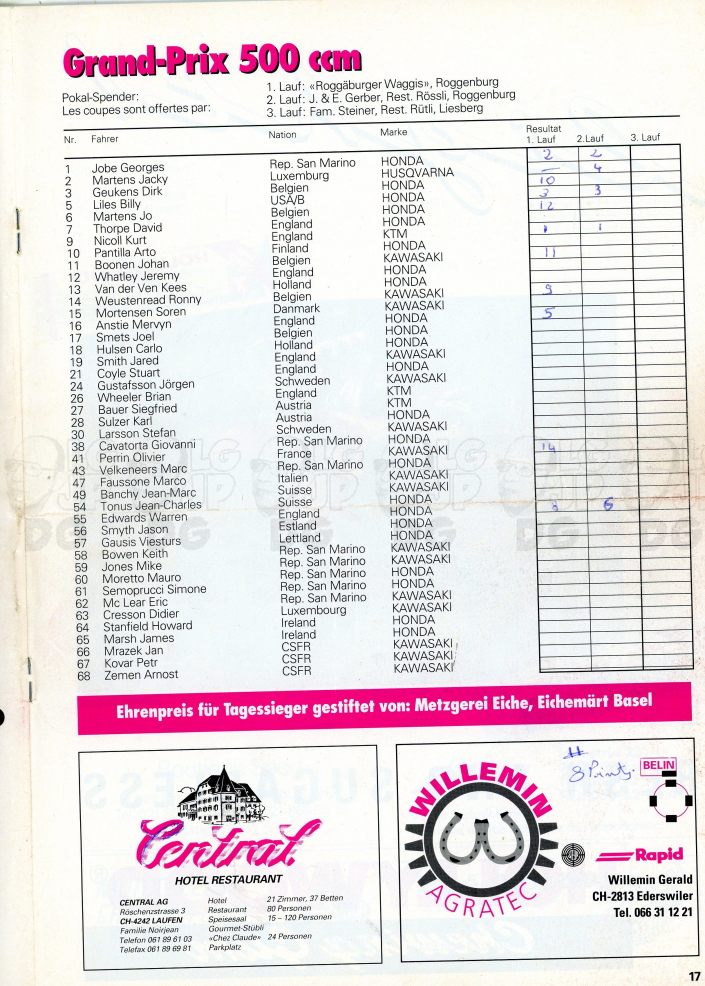 Grand-Prix 500 ccm
Pokal-Spender:
Les coupes sont offertes par:
1. Lauf: «Roggäburger Waggis», Roggenburg
2. Lauf: J. & E. Gerber, Rest. Rössli, Roggenburg
3. Lauf: Fam. Steiner, Rest. Rütli, Liesberg
Nr. Fahrer Nation Marke Resultat
1. Lauf 2.Lauf 3. Lauf
1 Jobe Georges Rep. San Marino HONDA 2 2
2 Martens Jacky Luxemburg HUSQVARNA — 4
3 Geukens Dirk Belgien HONDA 10
5 Liles Billy USA/B HONDA 3 3
6 Martens Jo Belgien HONDA 12
7 Thorpe David England HONDA 1 1
9 Nicoll Kurt England KTM
10 Pantilla Arto Finland HONDA
11 Boonen Johan Belgien KAWASAKI 11
12 Whatley Jeremy England HONDA
13 Van der Ven Kees Holland HONDA
14 Weustenread Ronny Belgien KAWASAKI 9
15 Mortensen Soren Danmark KAWASAKI
16 Anstie Mervyn England HONDA 5
17 Smets Joel Belgien HONDA
18 Hulsen Carlo Holland HONDA
19 Smith Jared England KAWASAKI
21 Coyle Stuart England HONDA
24 Gustafsson Jörgen Schweden KAWASAKI
26 Wheeler Brian England KTM
27 Bauer Siegfried Austria KTM
28 Sulzer Karl Austria HONDA
30 Larsson Stefan Schweden KAWASAKI
38 Cavatorta Giovanni Rep. San Marino HONDA
41 Perrin Olivier France KAWASAKI 14
43 Velkeneers Marc Rep. San Marino HONDA
47 Faussone Marco Italien KAWASAKI
49 Banchy Jean-Marc Suisse KAWASAKI
54 Tonus Jean-Charles Suisse HONDA
55 Edwards Warren England HONDA 8 6
56 Smyth Jason Estland HONDA
57 Gausis Viesturs Lettland HONDA
58 Bowen Keith Rep. San Marino KAWASAKI
59 Jones Mike Rep. San Marino KAWASAKI
60 Moretto Mauro Rep. San Marino HONDA
61 Semoprucci Simone Rep. San Marino HONDA
62 Mc Lear Eric Rep. San Marino KAWASAKI
63 Cresson Didier Luxembourg KAWASAKI
64 Stanfield Howard Ireland HONDA
65 Marsh James Ireland HONDA
66 Mrazek Jan CSFR KAWASAKI
67 Kovar Petr CSFR KAWASAKI
68 Zemen Arnost CSFR KAWASAKI
Ehrenpreis für Tagessieger gestiftet von: Metzgerei Eiche, Eichemärt Basel
Central
HOTEL RESTAURANT
CENTRAL AG
Röschenzstrasse 3
CH-4242 LAUFEN
Familie Noirjean
Telefon 061 89 61 03
Telefax 061 89 69 81
Hotel 21 Zimmer, 37 Betten
Restaurant 80 Personen
Speisesaal 15 – 120 Personen
Gourmet-Stübli
«Chez Claude» 24 Personen
Parkplatz
WILLEMIN
AGRATEC
8 Points.
BELIN
Rapid
Willemin Gerald
CH-2813 Ederswiler
Tel. 066 31 12 21
17